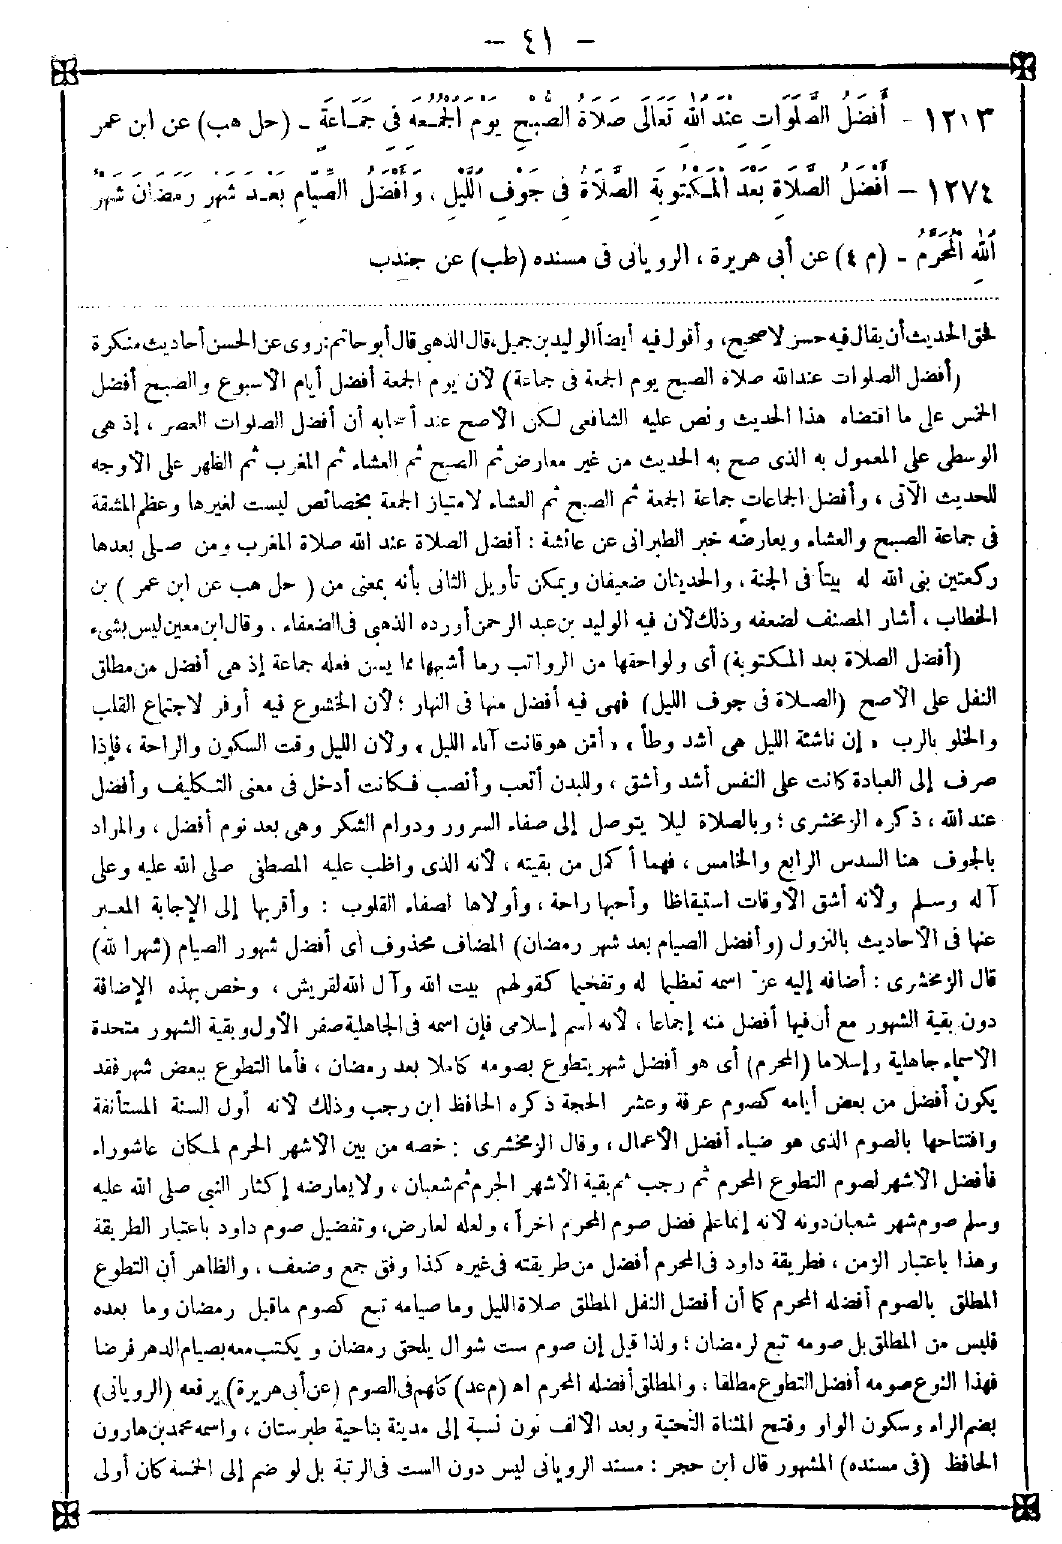 - ٤١ -
١٢٧٣ - أَفْضَلُ الصَّلَوَاتِ عِنْدَ اللهِ تَعَالَى صَلَاةُ الصُّبْحِ يَوْمَ الْجُمُعَةِ فِي جَمَاعَةٍ - (حل هب) عن ابن عمر
١٢٧٤ - أَفْضَلُ الصَّلَاةِ بَعْدَ الْمَكْتُوبَةِ الصَّلَاةُ فِي جَوْفِ اللَّيْلِ ، وَأَفْضَلُ الصِّيَامِ بَعْدَ شَهْرِ رَمَضَانَ شَهْرُ
اللهِ الْمُحَرَّمُ - (م ٤) عن أبى هريرة ، الرويانى فى مسنده (طب) عن جندب
لحق الحديث أن يقال فيه حسن لا صحيح، وأقول فيه أيضاً الوليد بن جميل، قال الذهبي قال أبو حاتم: روى عن الحسن أحاديث منكرة
(أفضل الصلوات عندالله صلاة الصبح يوم الجمعة فى جماعة) لأن يوم الجمعة أفضل أيام الأسبوع والصبح أفضل
الخمس على ما اقتضاه هذا الحديث ونص عليه الشافعى لكن الأصح عند أصحابه أن أفضل الصلوات العصر ، إذ هى
الوسطى على المعمول به الذى صح به الحديث من غير معارض ثم الصبح ثم العشاء ثم المغرب ثم الظهر على الأوجه
للحديث الآتى ، وأفضل الجماعات جماعة الجمعة ثم الصبح ثم العشاء لامتياز الجمعة بخصائص ليست لغيرها وعظم المشقة
فى جماعة الصبح والعشاء ويعارضه خبر الطبرانى عن عائشة : أفضل الصلاة عند الله صلاة المغرب ومن صلى بعدها
ركعتين بنى الله له بيتاً فى الجنة ، والحديثان ضعيفان ويمكن تأويل الثانى بأنه بمعنى من ( حل هب عن ابن عمر ) بن
الخطاب ، أشار المصنف لضعفه وذلك لأن فيه الوليد بن عبد الرحمن أورده الذهبى فى الضعفاء . وقال ابن معين ليس بشىء
(أفضل الصلاة بعد المكتوبة) أى ولواحقها من الرواتب وما أشبهها مما يسن فعله جماعة إذ هى أفضل من مطلق
النفل على الأصح (الصلاة فى جوف الليل) فهى فيه أفضل منها فى النهار ؛ لأن الخشوع فيه أوفر لاجتماع القلب
والخلو بالرب « إن ناشئة الليل هى أشد وطأ » « أمّن هو قانت آناء الليل » ولأن الليل وقت السكون والراحة ، فإذا
صرف إلى العبادة كانت على النفس أشد وأشق ، وللبدن أتعب وأنصب فكانت أدخل فى معنى التكليف وأفضل
عند الله ، ذكره الزمخشرى ؛ وبالصلاة ليلا يتوصل إلى صفاء السرور ودوام الشكر وهى بعد نوم أفضل ، والمراد
بالجوف هنا السدس الرابع والخامس ، فهما أكمل من بقيته ، لأنه الذى واظب عليه المصطفى صلى الله عليه وعلى
آله وسلم ولأنه أشق الأوقات استيقاظا وأحبها راحة ، وأولاها لصفاء القلوب : وأقربها إلى الإجابة المعبر
عنها فى الأحاديث بالنزول (وأفضل الصيام بعد شهر رمضان) المضاف محذوف أى أفضل شهور الصيام (شهر الله)
قال الزمخشرى : أضافه إليه عز اسمه تعظيما له وتفخيما كقولهم بيت الله وآل الله لقريش ، وخص بهذه الإضافة
دون بقية الشهور مع أن فيها أفضل منه إجماعا ، لأنه اسم إسلامى فإن اسمه فى الجاهلية صفر الأول وبقية الشهور متحدة
الأسماء جاهلية وإسلاما (المحرم) أى هو أفضل شهر يتطوع بصومه كاملا بعد رمضان ، فأما التطوع ببعض شهر فقد
يكون أفضل من بعض أيامه كصوم عرفة وعشر الحجة ذكره الحافظ ابن رجب وذلك لأنه أول السنة المستأنفة
وافتتاحها بالصوم الذى هو ضياء أفضل الأعمال ، وقال الزمخشرى : خصه من بين الأشهر الحرم لمكان عاشوراء
فأفضل الأشهر لصوم التطوع المحرم ثم رجب ثم بقية الأشهر الحرم ثم شعبان ، ولا يعارضه إكثار النبي صلى الله عليه
وسلم صوم شهر شعبان دونه لأنه إنما علم فضل صوم المحرم آخراً ، ولعله لعارض، وتفضيل صوم داود باعتبار الطريقة
وهذا باعتبار الزمن ، فطريقة داود فى المحرم أفضل من طريقته فى غيره كذا وفق جمع وضعف . والظاهر أن التطوع
المطلق بالصوم أفضله المحرم كما أن أفضل النفل المطلق صلاة الليل وما صيامه تبع كصوم ما قبل رمضان وما بعده
فليس من المطلق بل صومه تبع لرمضان ؛ ولذا قيل إن صوم ست شوال يلحق رمضان ويكتب معه بصيام الدهر فرضا
فهذا النوع صومه أفضل التطوع مطلقا ، والمطلق أفضله المحرم اه (م عد) كلهم فى الصوم (عن أبى هريرة) يرفعه (الرويانى)
بضم الراء وسكون الواو وفتح المثناة التحتية وبعد الألف نون نسبة إلى مدينة بناحية طبرستان ، واسمه محمد بن هارون
الحافظ (فى مسنده) المشهور قال ابن حجر : مسند الرويانى ليس دون الست فى الرتبة بل لو ضم إلى الخمسة كان أولى